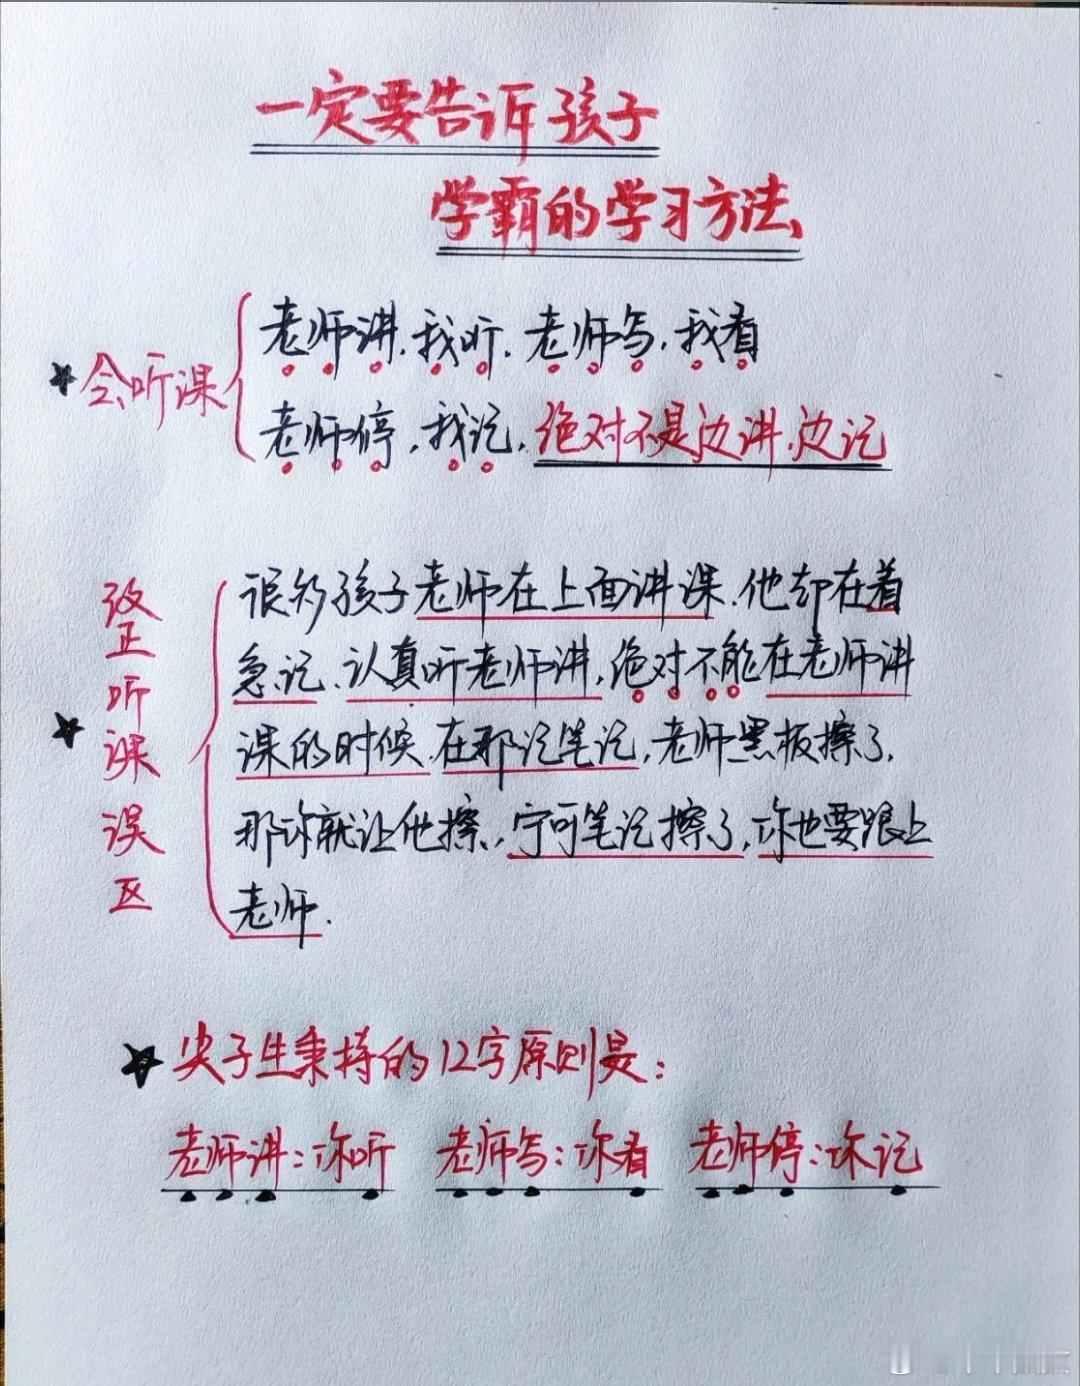 一定要告诉孩子
学霸的学习方法
会听课
老师讲,我听,老师写,我看
老师停,我记,绝对不是边讲,边记
改正听课误区
很多孩子老师在上面讲课,他却在着
急记、认真听老师讲,绝对不能在老师讲
课的时候,在那记笔记,老师黑板擦了,
那你就让他擦,宁可笔记擦了,你也要跟上
老师.
尖子生秉持的12字原则是:
老师讲:你听 老师写:你看 老师停:你记